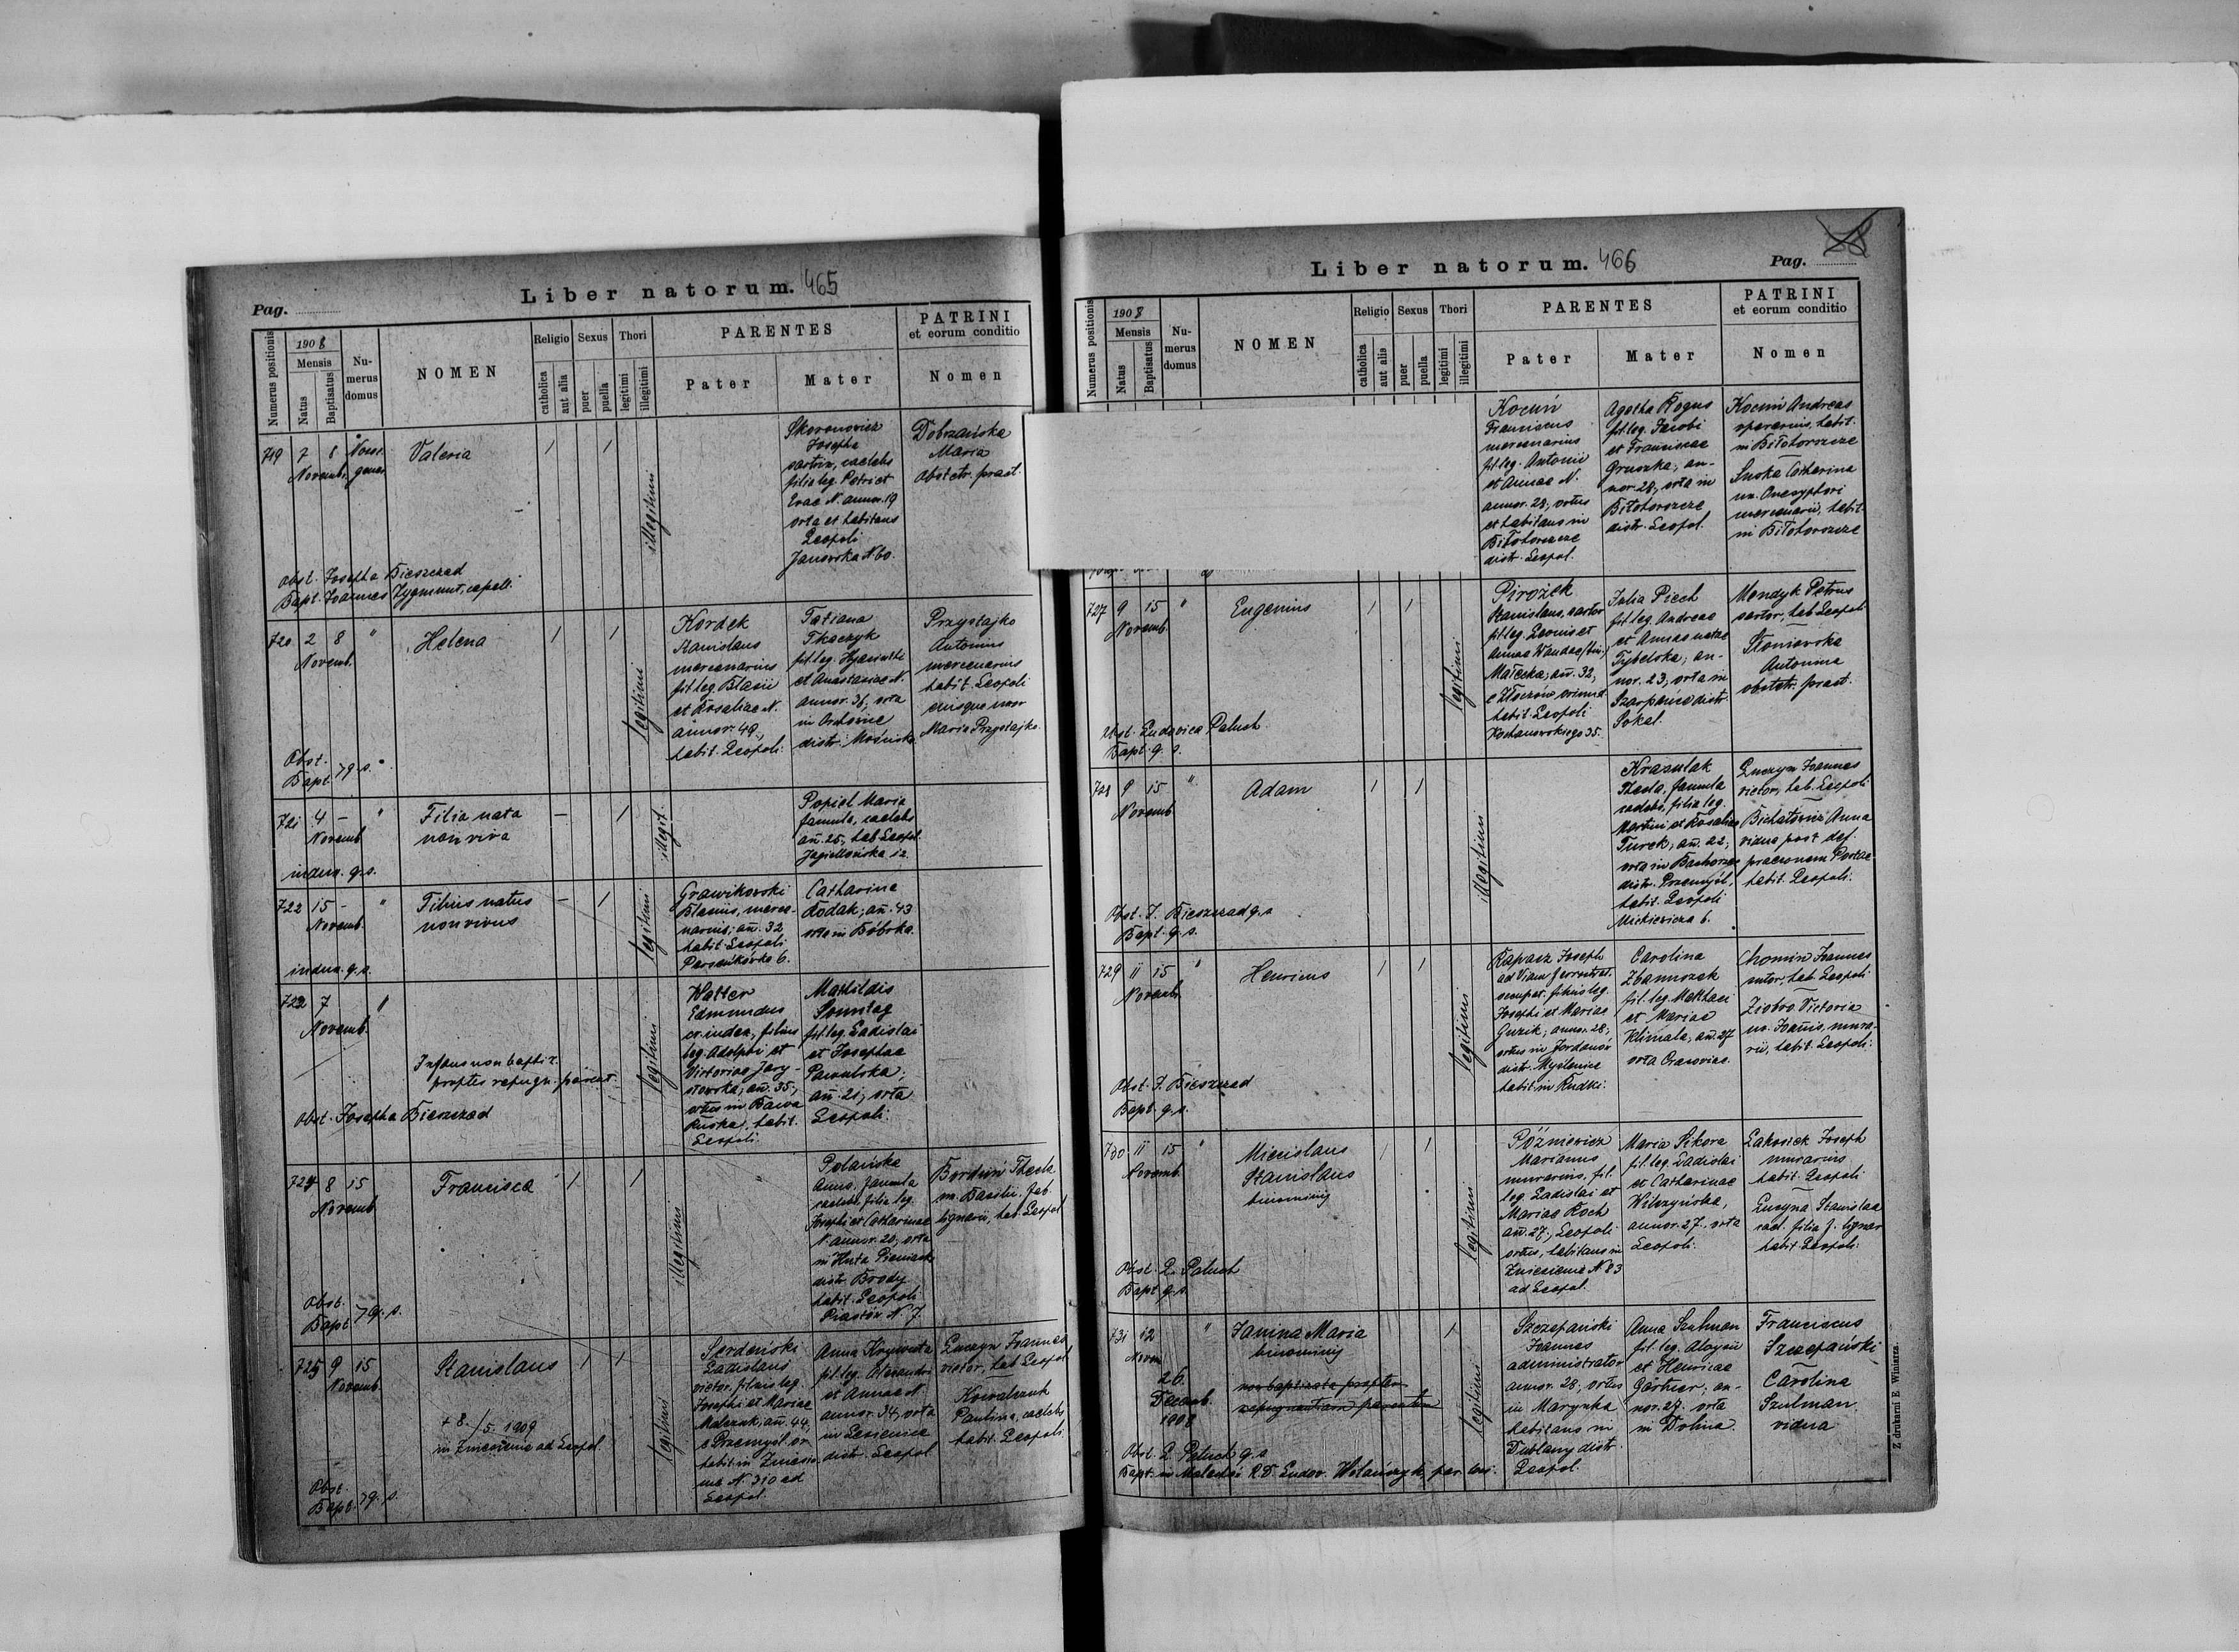 Pag.
Liber natorum. 465
Numerus positionis
1908
Mensis
Natus
Baptisatus
Nu-
merus
domus
NOMEN
Religio
catholica
aut alia
Sexus
puer
puella
Thori
legitimi
illegitimi
PARENTES
Pater
Mater
PATRINI
et eorum conditio
Nomen
719 7 8
Novemb.
Valeria
illegitimi
Skoronowicz
Josepha
sartrix, caelebs
filia leg. Petri et
Evae N. annor. 19
orta et habitans
Leopoli
Janowska N 60.
Dobrzańska
Maria
obstetr. pract.
Obst. Josepha Bieszczad
Bapt. Joannes Zygmunt, capell.
720 2 8 "
Novemb.
Helena
legitimi
Kordek
Stanislaus
mercenarius
fil. leg. Blasii
et Rosaliae N.
annor. 49,
habit. Leopoli.
Tatiana
Tkaczyk
fil. leg. Hyacinthi
et Anastasiae N.
annor. 36, orta
in
distr. Mościska
Przystajko
Antonius
mercenarius
habit. Leopoli
eiusque uxor
Maria Przystajko.
Obst.
Bapt. > q. s.
721 4 – "
Novemb.
Filia nata
non viva
illegit.
Popiel Maria
famula, caelebs
añ. 25, hab. Leopol.
Jagiellońska 12.
q. s.
722 15 – "
Novemb.
Filius natus
non vivus
legitimi
Grawikowski
Blasius, merce-
narius, añ. 32
habit. Leopoli
Persenkówka 6.
Catharina
Rodak, añ. 43
orta in Bóbrka.
q. s.
723 7 "
Novemb.
Infans non baptiz.
propter repugn. parent.
legitimi
Walter
Edmundus
filius
leg. Adolphi et
Victoriae Jary-
stowska, añ. 35,
ortus in Rawa
Ruska, habit.
Leopoli.
Mathildis
Sonntag
fil. leg. Ladislai
et Josephae
Pawulska;
añ. 21, orta
Leopoli.
Obst. Josepha Bieszczad
724 8 15
Novemb.
Francisca
illegitimi
Polańska
Anna, famula
caelebs, filia leg.
Josephi et Catharinae
N. annor. 20, orta
in Huta Pieniack.
distr. Brody
habit. Leopoli
Piastów N 7.
Borduń Thecla
ux. Basilii, fab.
lignarii, hab. Leopol.
Obst.
Bapt. > q. s.
725 9 15
Novemb.
Stanislaus
+ 8/5. 1909
in Zniesienie ad Leopol.
legitimi
Serdeński
Ladislaus
victor, filius leg.
Josephi et Mariae
Malczuk, añ. 44,
e Przemyśl. or.
habit. in Zniesie
nie N. 310 ad
Leopol.
Anna Krzywieta
fil. leg. Alexandri
et Annae N.
annor. 34, orta
in Lesienice
distr. Leopol.
Luczyn Joannes
victor, hab. Leopol.
Kowalczuk
Paulina, caelebs
habit. Leopoli.
Obst.
Bapt. > q. s.
Liber natorum. 466
Pag.
Numerus positionis
1908
Mensis
Natus
Baptisatus
Nu-
merus
domus
NOMEN
Religio
catholica
aut alia
Sexus
puer
puella
Thori
legitimi
illegitimi
PARENTES
Pater
Mater
PATRINI
et eorum conditio
Nomen
Kocuń
Franciscus
mercenarius
fil. leg. Antonii
et Annae N.
annor. 28, ortus
et habitans in
Biłohorszcze
distr. Leopol.
Agatha Rogus
fil. leg. Jacobi
et Franciscae
Gruszka, an-
nor. 28, orta in
Biłohorszcze
distr. Leopol.
Kocuń Andreas
operarius, habit.
in Biłohorszcze
Suska Catharina
ux. Onesyphori
mercenarii, habit.
in Biłohorszcze
727 9 15 "
Novemb.
Eugenius
legitimi
Pirożek
Stanislaus, sartor
fil. leg. Leonis et
Annae Wandae (bin.)
Małecka, añ. 32,
e Złoczów oriund.
habit. Leopoli
Kochanowskiego 35.
Julia Piech
fil. leg. Andreae
et Annae natae
Tybelska, an-
nor. 23, orta in
distr.
Sokal.
Mendyk Petrus
sartor, hab. Leopoli
Słoniowska
Antonina
obstetr. pract.
Obst. Ludovica Paluch
Bapt. q. s.
728 9 15 "
Novemb.
Adam
illegitimi
Krasulak
Thecla, famula
caelebs, filia leg.
Martini et Rosaliae
Turek, añ. 22,
orta in Bachorzec
distr. Przemyśl,
habit. Leopoli
Mickiewicza 6.
Luczyn Joannes
victor, hab. Leopoli
Anna
vidua post def.
praeconem Postae
habit. Leopoli.
Obst. J. Bieszczad q. s.
Bapt. q. s.
729 11 15 "
Novemb.
Henricus
legitimi
Rapacz Joseph
ad Viam ferrostrat.
occupat., filius leg.
Josephi et Mariae
Guzik, annor. 28,
ortus in Jordanów
distr. Myślenice
habit. in Rudki.
Carolina
Zbanuszek
fil. leg. Mathaei
et Mariae
Klimala, añ. 27
orta Cracoviae.
Chomin Joannes
sutor, hab. Leopoli
Ziobro Victoria
ux. Joannis, mura-
rii, habit. Leopoli.
Obst. J. Bieszczad
Bapt. q. s.
730 11 15 "
Novemb.
Miecislaus
Stanislaus
binominis
legitimi
Póżniewicz
Marianus
murarius, fil.
leg. Ladislai et
Mariae Koch
añ. 27, Leopoli
ortus, habitans in
Zniesienie N 83
ad Leopol.
Maria Sikora
fil. leg. Ladislai
et Catharinae
Wilczyńska,
annor. 27, orta
Leopoli.
Łakosiek Joseph
murarius
habit. Leopoli
Luczyna Stanislaa
cael. filia f. lignar.
habit. Leopoli.
Obst. L. Paluch
Bapt. q. s.
731 12 "
Novem.
26
Decemb.
1908
Janina Maria
binominis
non baptizata propter
repugnantiam parentum
legitimi
Szczepański
Joannes
administrator
annor. 28, ortus
in Marynka
habitans in
Dublany distr.
Leopol.
Anna Szulman
fil. leg. Aloysii
et Henricae
Gärtner, an-
nor. 27, orta
in Dolina.
Franciscus
Szczepański
Carolina
Szulman
vidua
Obst. L. Paluch q. s.
Bapt. in Malechów R. D. Ludov. Wolańczyk, par. loci.
Z drukarni E. Winiarza.